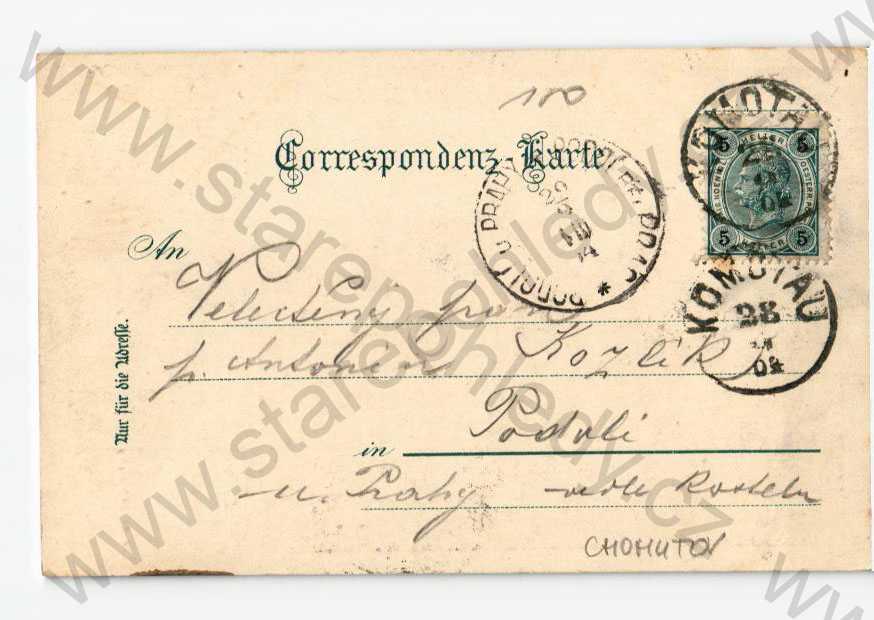 100
Correspondenz-Karte
An
Velectěný pan
p. Antonín Kozlík
in Podoli
u Prahy vedle Kostela
Nur für die Adresse.
CHOMUTOV
KOMOTAU
28
02
KOMOTAU
02
PODOLÍ U PRAHY
5 HELLER 5
5 HELLER 5
www.starepohledy.cz